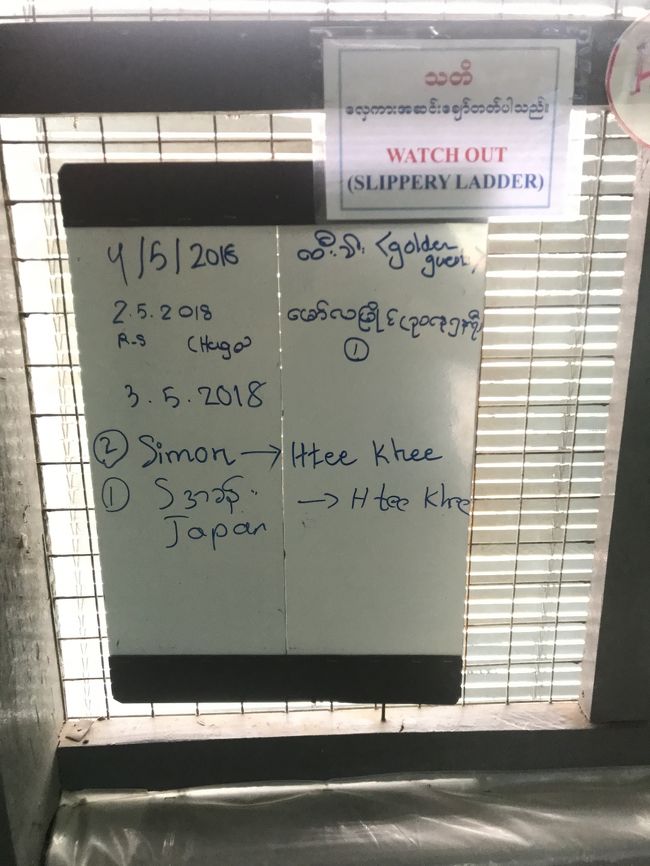 သတိ
လှေကားအဆင်းချော်တတ်ပါသည်။
WATCH OUT
(SLIPPERY LADDER)
4/5/2018 ထီးခီး (golden
2.5.2018 မော်လမြိုင်
R-S (Hugo) ①
3.5.2018
② Simon → Htee Khee
① → Htee Khee
Japan